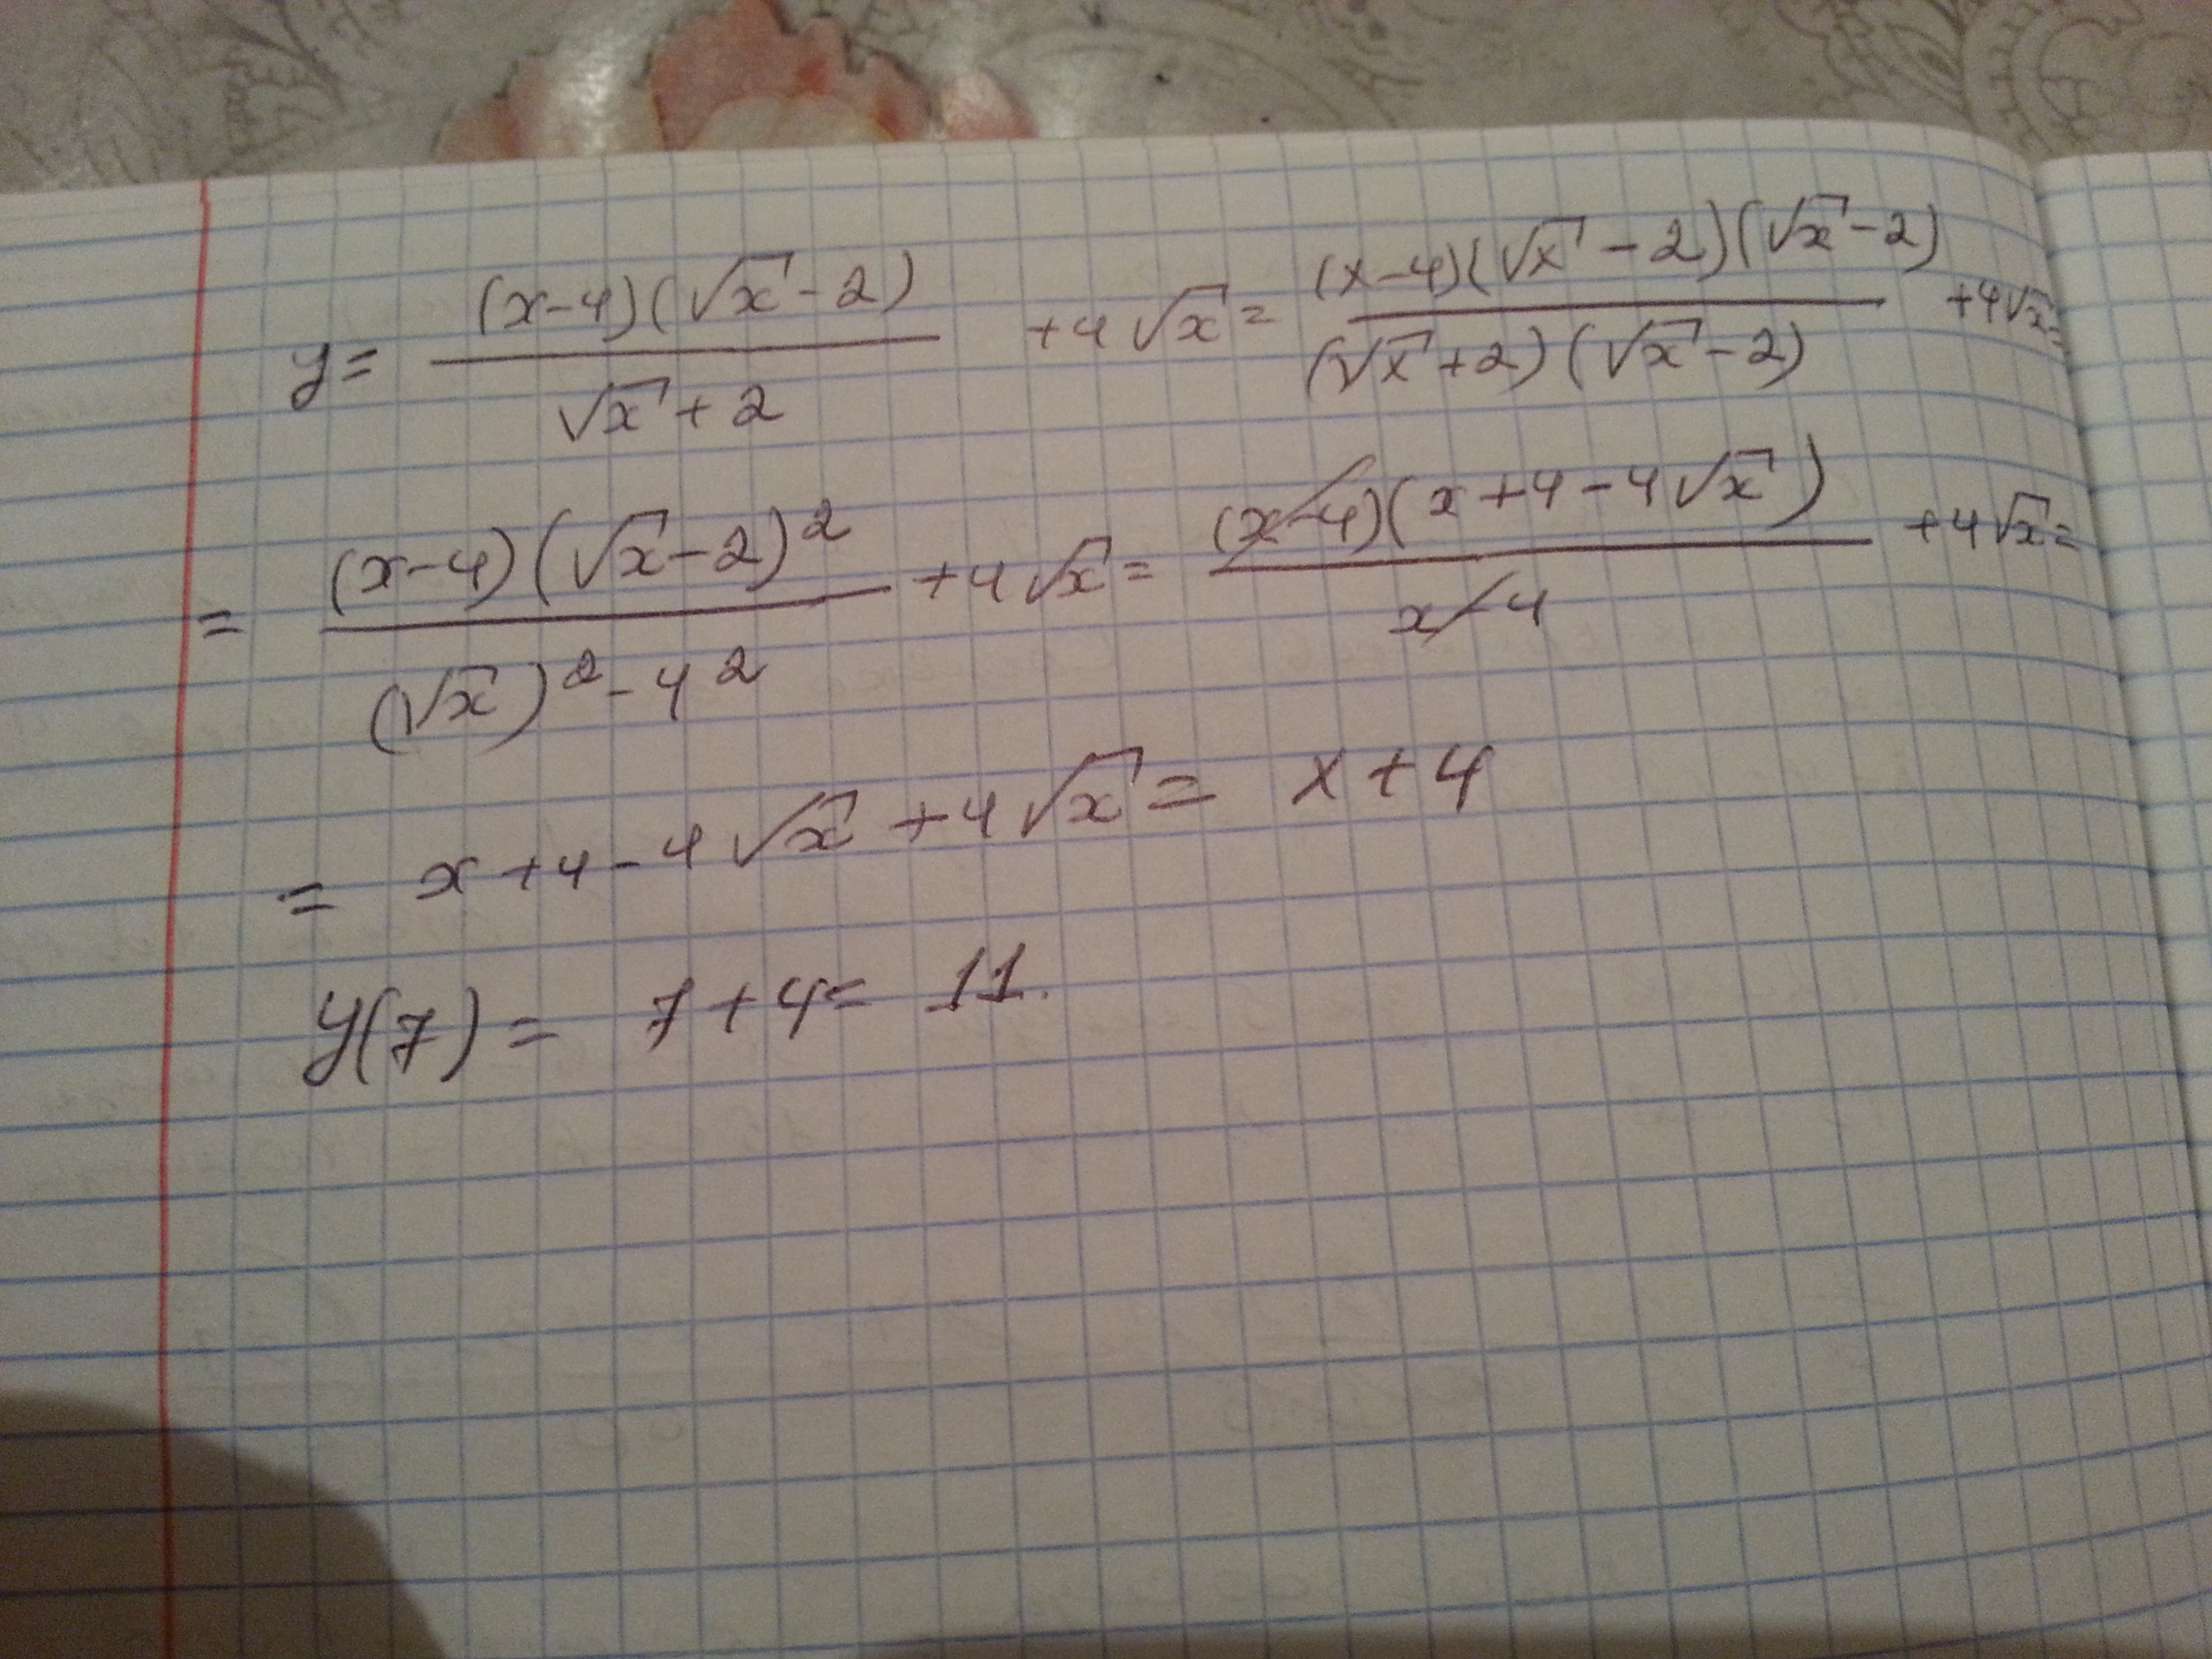 y = (x-4)(√x-2) / √x+2 +4√x = (x-4)(√x-2)(√x-2) / (√x+2)(√x-2) +4√x=
= (x-4)(√x-2)² / (√x)²-4² +4√x = (x-4)(x+4-4√x) / x-4 +4√x=
= x+4-4√x+4√x = x+4
y(7) = 7+4= 11.